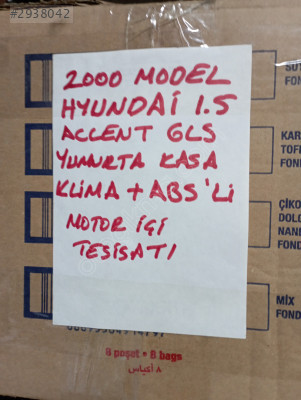 #2938042
2000 MODEL
HYUNDAİ 1.5
ACCENT GLS
YUMURTA KASA
KLİMA + ABS'Lİ
MOTOR İÇİ
TESİSATI
SÜT
FOND
KAR
TOFI
FOND
ÇİKO
DOLG
NANE
FOND
MİX
FOND
8 poşet • 8 bags
٨ أكياس